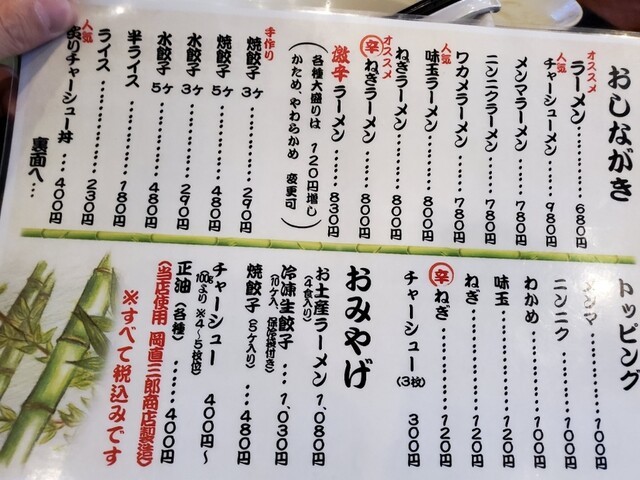 おしながき
オススメ
ラーメン‥‥‥680円
人気
チャーシューメン‥980円
メンマラーメン‥‥780円
ニンニクラーメン‥780円
ワカメラーメン‥‥780円
人気
味玉ラーメン‥‥‥800円
ねぎラーメン‥‥‥800円
オススメ
辛ねぎラーメン‥‥800円
激辛ラーメン‥‥‥830円
(各種大盛りは 120円増し
かため、やわらかめ 変更可)
手作り
焼餃子 3ヶ‥‥‥290円
焼餃子 5ヶ‥‥‥480円
水餃子 3ヶ‥‥‥290円
水餃子 5ヶ‥‥‥480円
半ライス‥‥‥‥180円
ライス‥‥‥‥‥230円
人気
炙りチャーシュー丼‥400円
裏面へ…
トッピング
メンマ‥‥‥100円
ニンニク‥‥100円
わかめ‥‥‥100円
味玉‥‥‥‥120円
ねぎ‥‥‥‥120円
辛ねぎ‥‥‥120円
チャーシュー(3枚) 300円
おみやげ
お土産ラーメン‥1,080円
(4食入り)
冷凍生餃子‥1,030円
(10ヶ入、保冷袋付き)
焼餃子(5ヶ入り)‥480円
チャーシュー 400円〜
100gより ※4〜5枚位
正油(各種)‥‥400円
(当店使用 岡直三郎商店製造)
※すべて税込みです